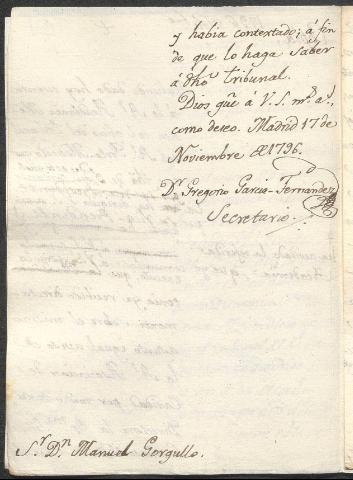 y habia contextado; á fin
de que lo haga saber
á dhō tribunal.
Dios güe á V. S. ms. as.,
como deseo. Madrid 17 de
Noviembre de 1796.
Dr. Gregorio Garcia Fernandez
Secretario.
Sr. Dn. Manuel Gorgullo.